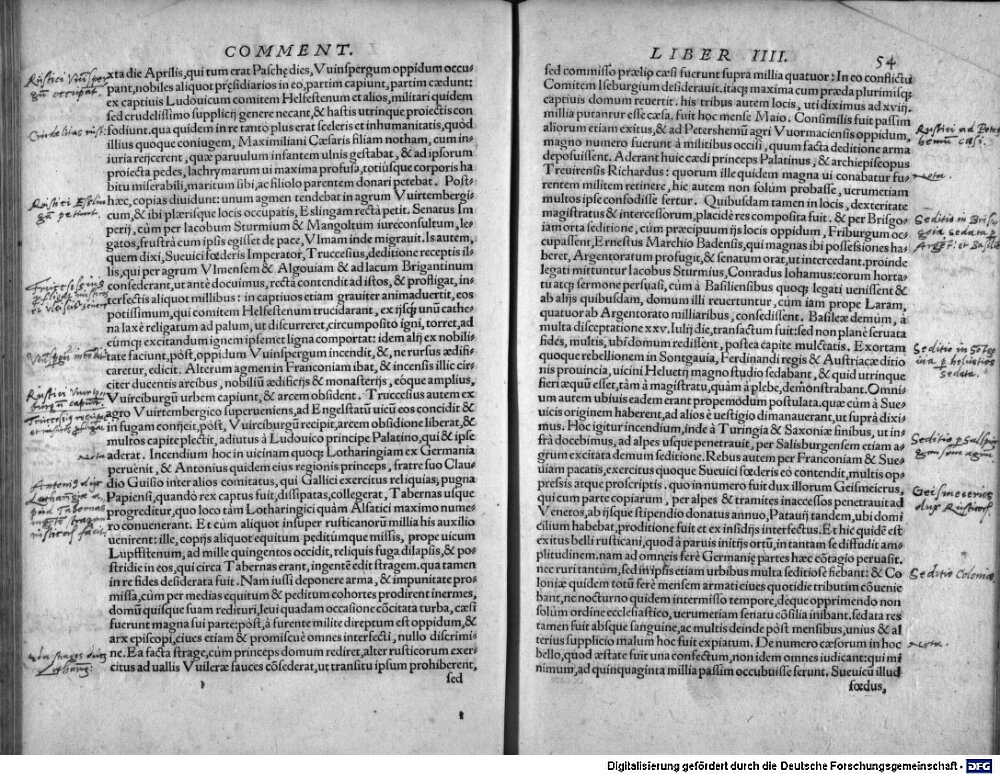 COMMENT.
xta die Aprilis, qui tum erat Paschę dies, Vuinspergum oppidum occu-
pant, nobiles aliquot pręsidiarios in eo, partim capiunt, partim cædunt:
ex captiuis Ludouicum comitem Helfestenum et alios, militari quidem
sed crudelissimo supplicij genere necant, & hastis utrinque proiectis con
fodiunt. qua quidem in re tanto plus erat sceleris et inhumanitatis, quòd
illius quoque coniugem, Maximiliani Cæsaris filiam notham, cum in-
iuria reijcerent, quæ paruulum infantem ulnis gestabat, & ad ipsorum
proiecta pedes, lachrymarum ui maxima profusa, totiusque corporis ha
bitu miserabili, maritum sibi, ac filiolo parentem donari petebat. Post-
hæc, copias diuidunt: unum agmen tendebat in agrum Vuirtembergi-
cum, & ibi plærisque locis occupatis, Eslingam rectà petit. Senatus Im
perij, cùm per Iacobum Sturmium & Mangoltum iureconsultum, le-
gatos, frustrà cum ipsis egisset de pace, Vlmam inde migrauit. Is autem,
quem dixi, Sueuici fœderis Imperator, Truccesius, deditione receptis il-
lis, qui per agrum Vlmensem & Algouiam & ad lacum Brigantinum
consederant, ut antè docuimus, rectà contendit ad istos, & profligat, in-
terfectis aliquot millibus: in captiuos etiam grauiter animaduertit, eos
potissimum, qui comitem Helfestenum trucidarant, ex ijsq́; unũ cathe-
na laxè religatum ad palum, ut discurreret, circumposito igni, torret, ad
cumq; excitandum ignem ipsemet ligna comportat: idem alij ex nobili-
tate faciunt, pòst, oppidum Vuinspergum incendit, &, ne rursus ædifi-
caretur, edicit. Alterum agmen in Franconiam ibat, & incensis illic cir-
citer ducentis arcibus, nobiliũ ædificijs & monasterijs, eòque amplius,
Vuirciburgũ urbem capiunt, & arcem obsident. Truccesius autem ex
agro Vuirtembergico superueniens, ad Engelstatũ uicũ eos concidit &
in fugam conijcit, pòst, Vuirciburgũ recipit, arcem obsidione liberat, &
multos capite plectit, adiutus à Ludouico principe Palatino, qui & ipse
aderat. Incendium hoc in uicinam quoq; Lotharingiam ex Germania
peruenit, & Antonius quidem eius regionis princeps, fratre suo Clau
dio Guisio inter alios comitatus, qui Gallici exercitus reliquias, pugna
Papiensi, quando rex captus fuit, dissipatas, collegerat, Tabernas usque
progreditur, quo loco tàm Lotharingici quàm Alsatici maximo nume-
ro conuenerant. Et cùm aliquot insuper rusticanorũ millia his auxilio
uenirent: ille, copijs aliquot equitum peditúmque missis, prope uicum
Lupffstenum, ad mille quingentos occidit, reliquis fuga dilapsis, & po-
stridie in eos, qui circa Tabernas erant, ingentē edit stragem. qua tamen
in re fides desiderata fuit. Nam iussi deponere arma, & impunitate pro
missa, cùm per medias equitum & peditum cohortes prodirent inermes,
domũ quisque suam redituri, leui quadam occasione cõcitata turba, cæsi
fuerunt magna sui parte: pòst, à furente milite direptum est oppidum, &
arx episcopi, ciues etiam & promiscuè omnes interfecti, nullo discrimi-
ne. Ea facta strage, cùm princeps domum rediret, alter rusticorum exer-
citus ad uallis Vuileræ fauces cõsederat, ut transitu ipsum prohiberent,
sed
LIBER IIII.
54
sed commisso prælio cæsi fuerunt supra millia quatuor: In eo conflictu
Comitem Iseburgium desiderauit. itaq; maxima cum præda plurimisq;
captiuis domum reuertit. his tribus autem locis, uti diximus ad xviij.
millia putantur esse cæsa. fuit hoc mense Maio. Consimilis fuit passim
aliorum etiam exitus, & ad Petershemũ agri Vuormaciensis oppidum,
magno numero fuerunt à militibus occisi, quum facta deditione arma
deposuissent. Aderant huic cædi princeps Palatinus, & archiepiscopus
Treuirensis Richardus: quorum ille quidem magna ui conabatur fu-
rentem militem retinere, hic autem non solùm probasse, uerumetiam
multos ipse confodisse fertur. Quibusdam tamen in locis, dexteritate
magistratus & intercessorum, placidè res composita fuit. & per Brisgo-
iam orta seditione, cùm præcipuum ijs locis oppidum, Friburgum oc-
cupassent, Ernestus Marchio Badensis, qui magnas ibi possessiones ha-
beret, Argentoratum profugit, & senatum orat, ut intercedant. proinde
legati mittuntur Iacobus Sturmius, Conradus Iohamus: eorum horta-
tu atq; sermone persuasi, cùm à Basiliensibus quoq; legati uenissent &
ab alijs quibusdam, domum illi reuertuntur, cùm iam prope Laram,
quatuor ab Argentorato milliaribus, consedissent. Basileæ demum, à
multa disceptatione xxv. Iulij die, transactum fuit: sed non planè seruata
fides, multis, ubi domum redissent, postea capite mulctatis. Exortam
quoque rebellionem in Sontgauia, Ferdinandi regis & Austriacæ ditio
nis prouincia, uicini Heluetij magno studio sedabant, & quid utrinque
fieri æquũ esset, tàm à magistratu, quàm à plebe, demõstrabant. Omni-
um autem ubiuis eadem erant propemodum postulata. quæ cùm à Sue-
uicis originem haberent, ad alios è uestigio dimanauerant, ut suprà dixi-
mus. Hoc igitur incendium, inde à Turingia & Saxoniæ finibus, ut in-
frà docebimus, ad alpes usque penetrauit, per Salisburgensem etiam a-
grum excitata demum seditione. Rebus autem per Franconiam & Sue-
uiam pacatis, exercitus quoque Sueuici fœderis eò contendit, multis op-
pressis atque proscriptis. quo in numero fuit dux illorum Geismeierus,
qui cum parte copiarum, per alpes & tramites inaccessos penetrauit ad
Venetos, ab ijsque stipendio donatus annuo, Patauij tandem, ubi domi
cilium habebat, proditione fuit et ex insidijs interfectus. Et hic quidē est
exitus belli rusticani, quod à paruis initijs ortũ, in tantam se diffudit am-
plitudinem. nam ad omneis ferè Germanię partes hæc cõtagio peruasit.
nec ruri tantùm, sed in ipsis etiam urbibus multa seditiosè fiebant: & Co
loniæ quidem totũ ferè mensem armati ciues quotidie tributim cõuenie
bant, ne nocturno quidem intermisso tempore, déque opprimendo non
solùm ordine ecclesiastico, uerumetiam senatu cõsilia inibant. sedata res
tamen fuit absque sanguine, ac multis deinde pòst mensibus, unius & al
terius supplicio malum hoc fuit expiatum. De numero cæsorum in hoc
bello, quod æstate fuit una confectum, non idem omnes iudicant: qui mi
nimum, ad quinquaginta millia passim occubuisse ferunt. Sueuicũ illud
fœdus,
Rustici ad Peters
hemũ cæsi.
Nota.
Seditio in Brisgoia sedata
Seditio p Salspur
Geismeierus
dux Rusticorũ
Seditio Coloniæ
Nota.
Digitalisierung gefördert durch die Deutsche Forschungsgemeinschaft - DFG